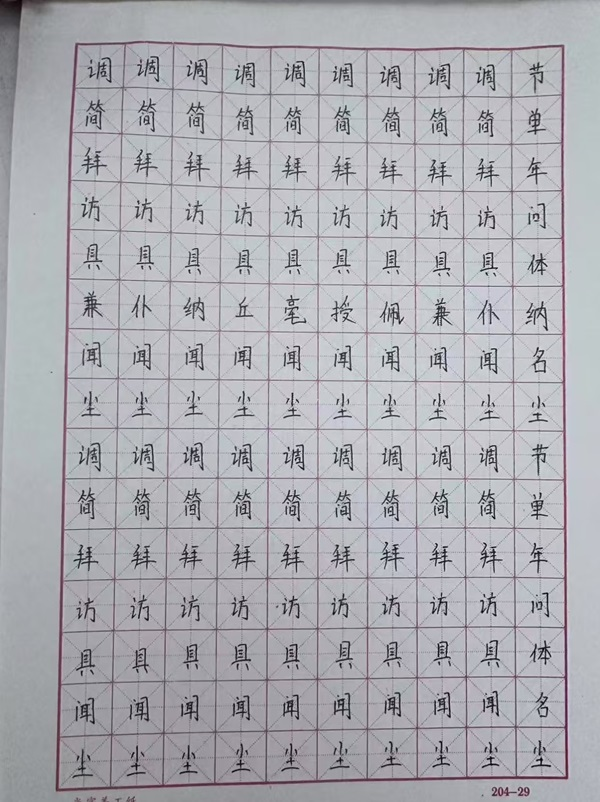 调调调调调调调调调节
简简简简简简简简简单
拜拜拜拜拜拜拜拜拜年
访访访访访访访访访问
具具具具具具具具具体
兼仆纳丘毫授佩兼仆纳
闻闻闻闻闻闻闻闻闻名
尘尘尘尘尘尘尘尘尘尘
调调调调调调调调调节
简简简简简简简简简单
拜拜拜拜拜拜拜拜拜年
访访访访访访访访访问
具具具具具具具具具体
闻闻闻闻闻闻闻闻闻名
尘尘尘尘尘尘尘尘尘尘
204-29